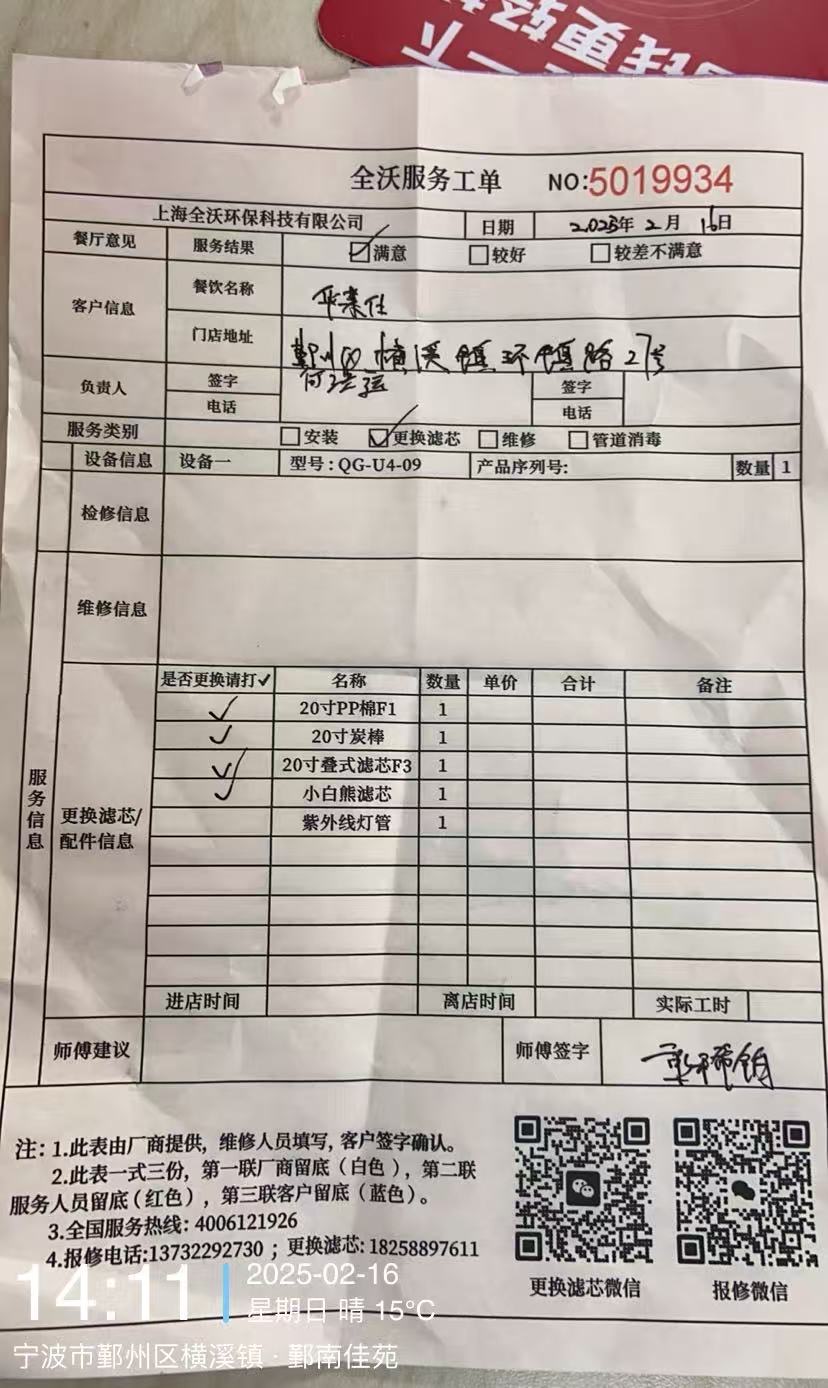 全沃服务工单 NO:5019934
上海全沃环保科技有限公司 日期 2025年2月16日
餐厅意见 服务结果 ☑满意 □较好 □较差不满意
客户信息 餐饮名称 华莱仕
门店地址 鄞州区横溪镇环镇路27号
负责人 签字 签字
电话 电话
服务类别 □安装 ☑更换滤芯 □维修 □管道消毒
设备信息 设备一 型号:QG-U4-09 产品序列号: 数量 1
检修信息
维修信息
服务信息
更换滤芯/配件信息
是否更换请打✓ 名称 数量 单价 合计 备注
✓ 20寸PP棉F1 1
✓ 20寸炭棒 1
✓ 20寸叠式滤芯F3 1
✓ 小白熊滤芯 1
紫外线灯管 1
进店时间 离店时间 实际工时
师傅建议 师傅签字
注：1.此表由厂商提供，维修人员填写，客户签字确认。
2.此表一式三份，第一联厂商留底（白色），第二联
服务人员留底（红色），第三联客户留底（蓝色）。
3.全国服务热线: 4006121926
4.报修电话:13732292730；更换滤芯: 18258897611
更换滤芯微信 报修微信
14:11 2025-02-16
星期日 晴 15℃
宁波市鄞州区横溪镇·鄞南佳苑